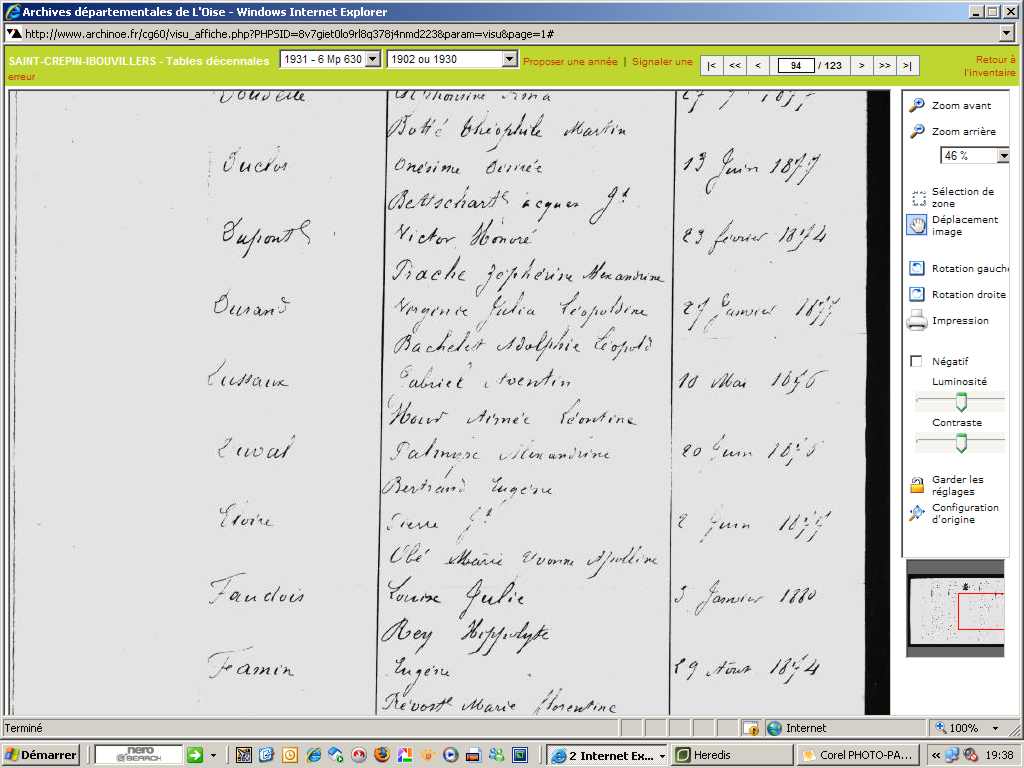 Archives départementales de L'Oise - Windows Internet Explorer
http://www.archinoe.fr/cg60/visu_affiche.php?PHPSID=8v7giet0lo9rl8q378j4nmd223&param=visu&page=1#
SAINT-CREPIN-IBOUVILLERS - Tables décennales
1931 - 6 Mp 630
1902 ou 1930
Proposer une année | Signaler une erreur
|< << < 94 / 123 > >> >|
Retour à l'inventaire
Botté Théophile Martin
Duclos Onésime Désirée 13 Juin 1877
Bettschart Jacques Jh
Dupont Victor Honoré 23 février 1874
Piache Zéphirine Alexandrine
Durand Virginie Julia Léopoldine 27 Janvier 1877
Bachelet Adolphe Léopold
Dussaux Gabriel Aventin 10 Mai 1876
Hour Aimée Léontine
Duval Palmyre Alexandrine 20 Juin 1878
Bertrand Eugène
Eloire Pierre Jh 2 Juin 1877
Obé Marie Yvonne Apolline
Faudois Louise Julie 5 Janvier 1880
Rey Hippolyte
Famin Eugène 29 Août 1874
Prévost Marie Florentine
Zoom avant
Zoom arrière
46 %
Sélection de zone
Déplacement image
Rotation gauche
Rotation droite
Impression
Négatif
Luminosité
Contraste
Garder les réglages
Configuration d'origine
Terminé
Internet
100%
Démarrer
nero SEARCH
2 Internet Ex...
Heredis
Corel PHOTO-PA...
19:38